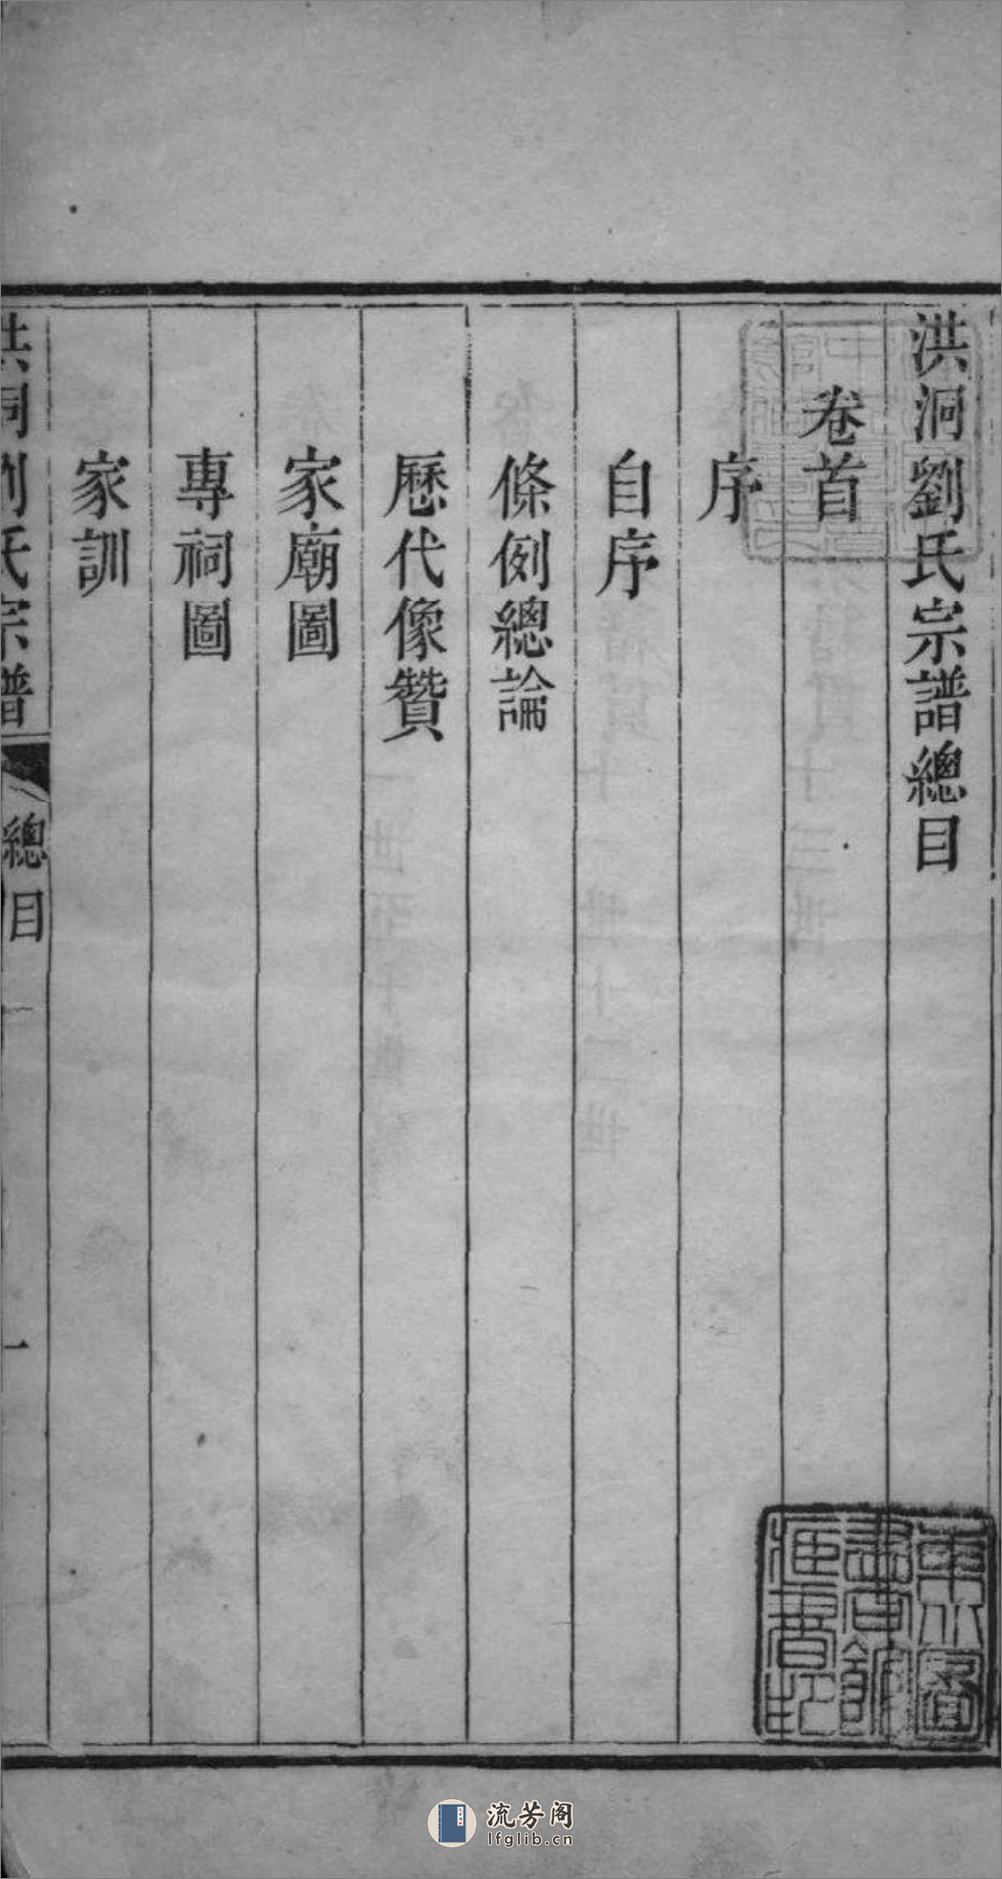 洪洞劉氏宗譜總目
卷首
序
自序
條例總論
歷代像贊
家廟圖
專祠圖
家訓
洪洞劉氏宗譜
總目
一
流芳阁
lfglib.cn